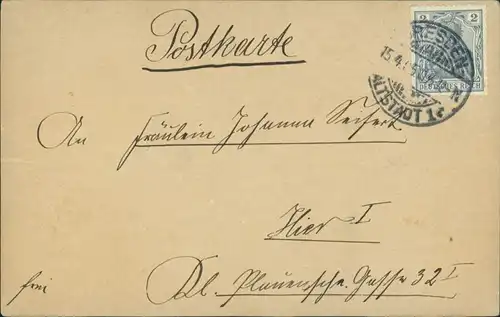 Postkarte
2 2
DRESDEN
15.4.
ALTSTADT 1
An Fräulein Johanna Seifert
Hier I
frei
Kl. Plauensche. Gasse 32 I